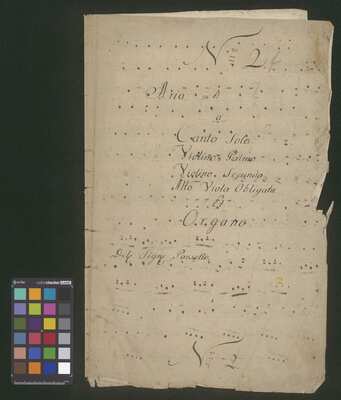 2
Aria
a
Canto Solo
Violino Primo
Violino Segundo
Alto Viola Obligata
Organo
Del Sigre
2